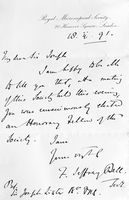 Royal Microscopical Society
20 Hanover Square, London
18. 2. 91.
My dear Sir Joseph
I am happy to be able
to tell you that at a meeting
of this Society held this evening
you were unanimously elected
an Honorary Fellow of the
Society. I am
Yours
F. Jeffrey Bell.
Sir Joseph Lister